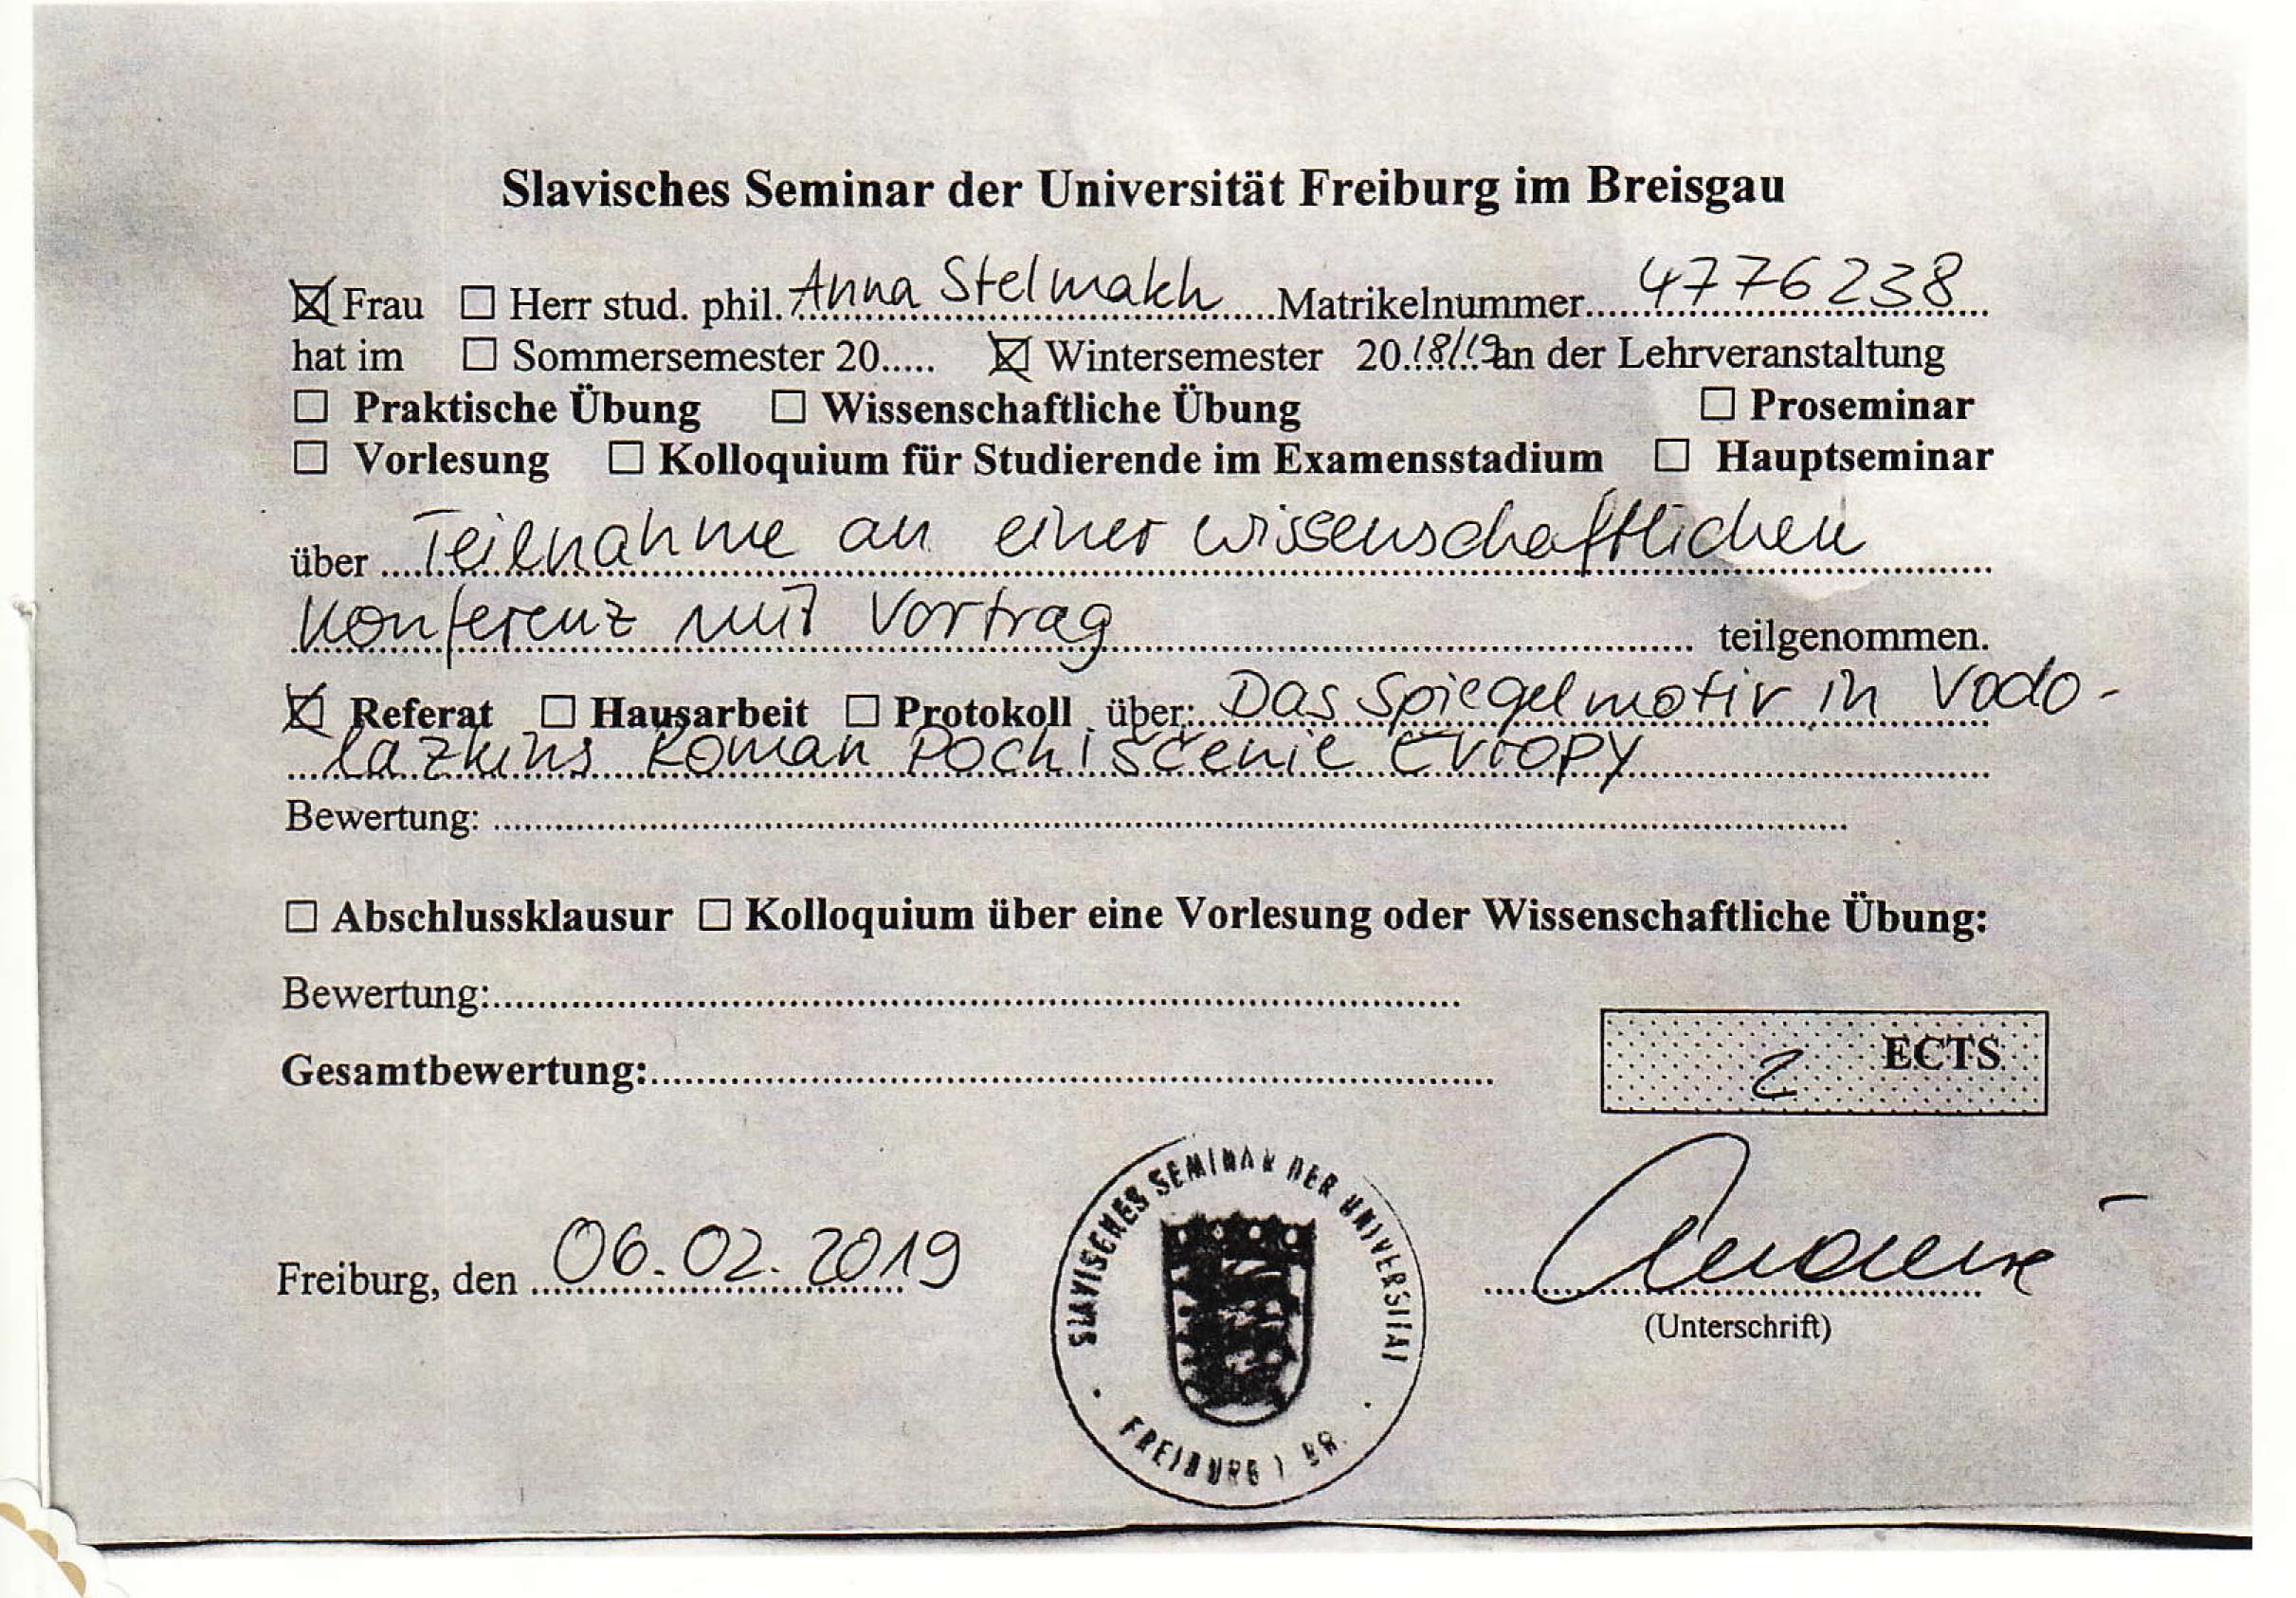 Slavisches Seminar der Universität Freiburg im Breisgau
☒ Frau ☐ Herr stud. phil. Anna Stelmakh Matrikelnummer 4776238
hat im ☐ Sommersemester 20..... ☒ Wintersemester 20 18/19 an der Lehrveranstaltung
☐ Praktische Übung ☐ Wissenschaftliche Übung ☐ Proseminar
☐ Vorlesung ☐ Kolloquium für Studierende im Examensstadium ☐ Hauptseminar
über Teilnahme an einer wissenschaftlichen
Konferenz mit Vortrag teilgenommen.
☒ Referat ☐ Hausarbeit ☐ Protokoll über: Das Spiegelmotiv in Vodo-
lazkins Roman Pochiščenie Evropy
Bewertung:
☐ Abschlussklausur ☐ Kolloquium über eine Vorlesung oder Wissenschaftliche Übung:
Bewertung:
Gesamtbewertung:
2 ECTS
Freiburg, den 06.02.2019
(Unterschrift)
SLAVISCHES SEMINAR DER UNIVERSITÄT
FREIBURG I BR.